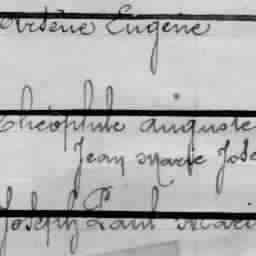 Arsène Eugène
Théophile Auguste
Jean Marie Jose
Joseph Paul Marie